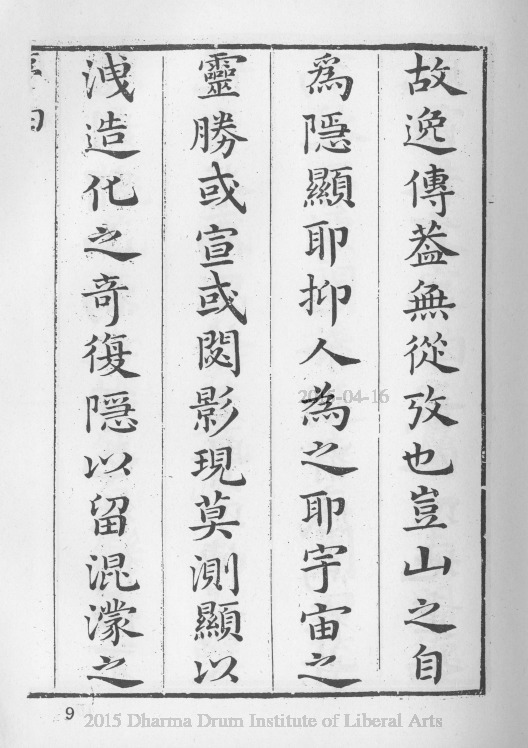 故逸傳葢無從攷也豈山之自
爲隱顯耶抑人為之耶宇宙之
靈勝或宣或閟影現莫測顯以
洩造化之竒復隱以留混濛之
2015-04-16
9
2015 Dharma Drum Institute of Liberal Arts